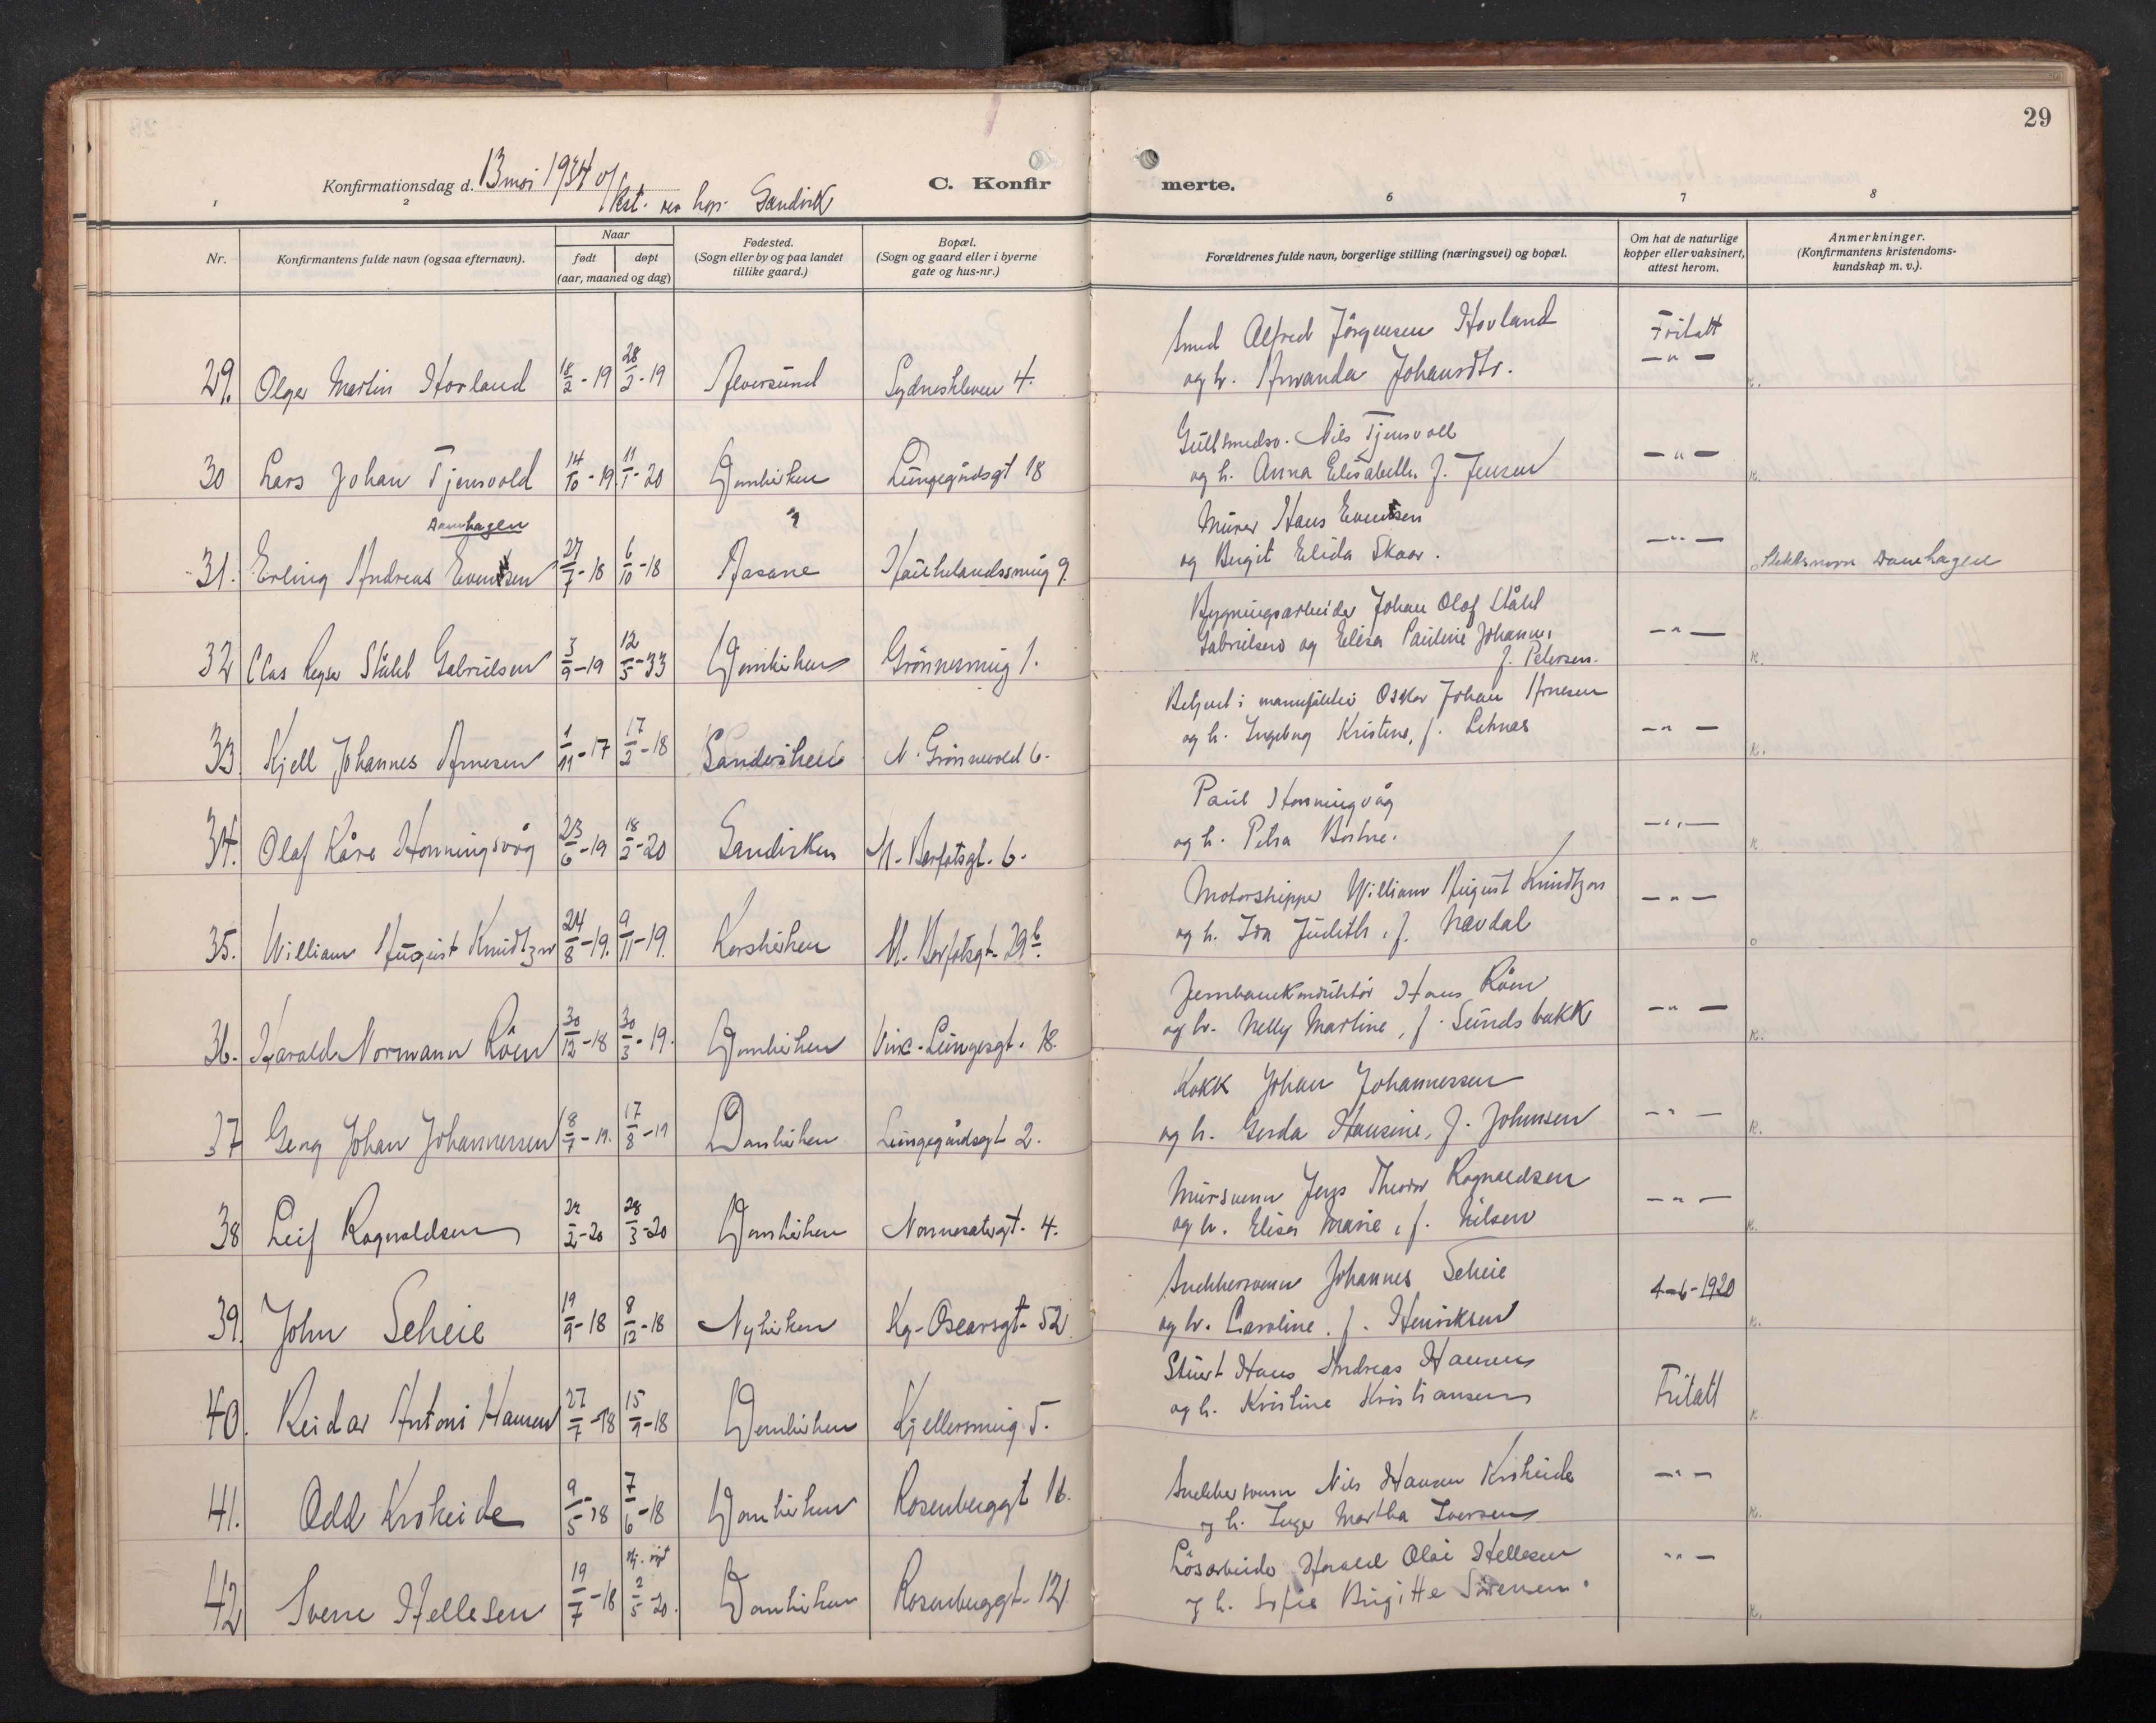 29
Konfirmationsdag d. 13 mai 1934 v/
C. Konfir
merte.
Sandvik
1
2
6
7
8
Nr.
Konfirmantens fulde navn (ogsaa efternavn).
Naar
født
døpt
(aar, maaned og dag)
Fødested.
(Sogn eller by og paa landet
tillike gaard.)
Bopæl.
(Sogn og gaard eller i byerne
gate og hus-nr.)
Forældrenes fulde navn, borgerlige stilling (næringsvei) og bopæl.
Om hat de naturlige
kopper eller vaksinert,
attest herom.
Anmerkninger.
(Konfirmantens kristendoms-
kundskap m. v.).
Smed Alfred Jörgensen Hovland Fritatt
29. Olger Martin Hovland 18/2-19 28/2-19 Alversund Sydneskleven 4. og h. Amanda Johansdtr. -"- k.
Gullsmedsv. Nils Tjensvold
30 Lars Johan Tjensvold 14/10-19. 11/1-20 Domkirken Lungegårdsgt 18 og h. Anna Elisabeth f. Jensen -"- k.
Damhagen
Murer Hans Evensen
31. Erling Andreas Evensen 27/7-18 6/10-18 Aasane Haukelandssmug 9. og Birgit Elida Skaar. -"- Slektsnavn Damhagen
Bygningsarbeider Johan Olaf Ståhl
32 Clas Roger Ståhl Gabrielsen 3/9-19 12/5-33 Domkirken Grönnersmug 1. Gabrielsen og Elisa Pauline Johanne, -"- k.
f. Petersen.
Betjent i manufaktur Oskar Johan Arnesen
33 Kjell Johannes Arnesen 1/11-17 17/2-18 Sandvikens N. Grönnevold 6. og h. Ingeborg Kristine, f. Leknes -"- k.
Paul Honningvåg
34. Olaf Kåre Honningsvåg 23/6-19 18/2-20 Sandvikens M. Barfotsgt. 6. og h. Petra -"- k
Motorskipper William August Knudtzon
35. William August Knudtzon 24/8-19. 9/11-19. Korskirken M. Barfotsgt. 29b. og h. Ida Judith, f. Nævdal -"- o
Jernbanekonduktör Hans Röen
36. Harald Normann Röen 30/12-18 30/3-19. Domkirken Vinc. Lungesgt. 18. og h. Nelly Martine, f. Sundsbakk -"- k.
Kokk Johan Johannessen
37 Georg Johan Johannessen 8/7-19. 17/8-19 Domkirken Lungegårdsgt 2. og h. Gerda Hansine, f. Johnsen -"- k.
Mursvenn Jens Theodor Ragnvaldsen
38 Leif Ragnvaldsen 22/2-20 28/3-20 Domkirken Nonnesetergt. 4. og h. Elisa Marie, f. Nilsen -"- k.
Snekkersvenn Johannes Scheie
39. John Scheie 19/9-18 8/12-18 Nykirken Kg. Oscarsgt. 52 og h. Caroline, f. Henriksen 4-6-1920 k.
Stuert Hans Andreas Hansen
40. Reidar Antoni Hansen 27/7-18 15/9-18 Domkirken Kjellersmug 5. og h. Kristine Kristiansen Fritatt k.
Snekkersvenn Nils Hansen Krokeide
41. Odd Krokeide 9/5-18 7/6-18 Domkirken Rosenberggt 16. og h. Inga Martha Iversen -"- k.
Lösarbeider Harald Olai Hellesen
42 Sverre Hellesen 19/7-18 2/5-20. Domkirken Rosenberggt. 12 og h. Sofie Birgitte Sörensen. -"- k.